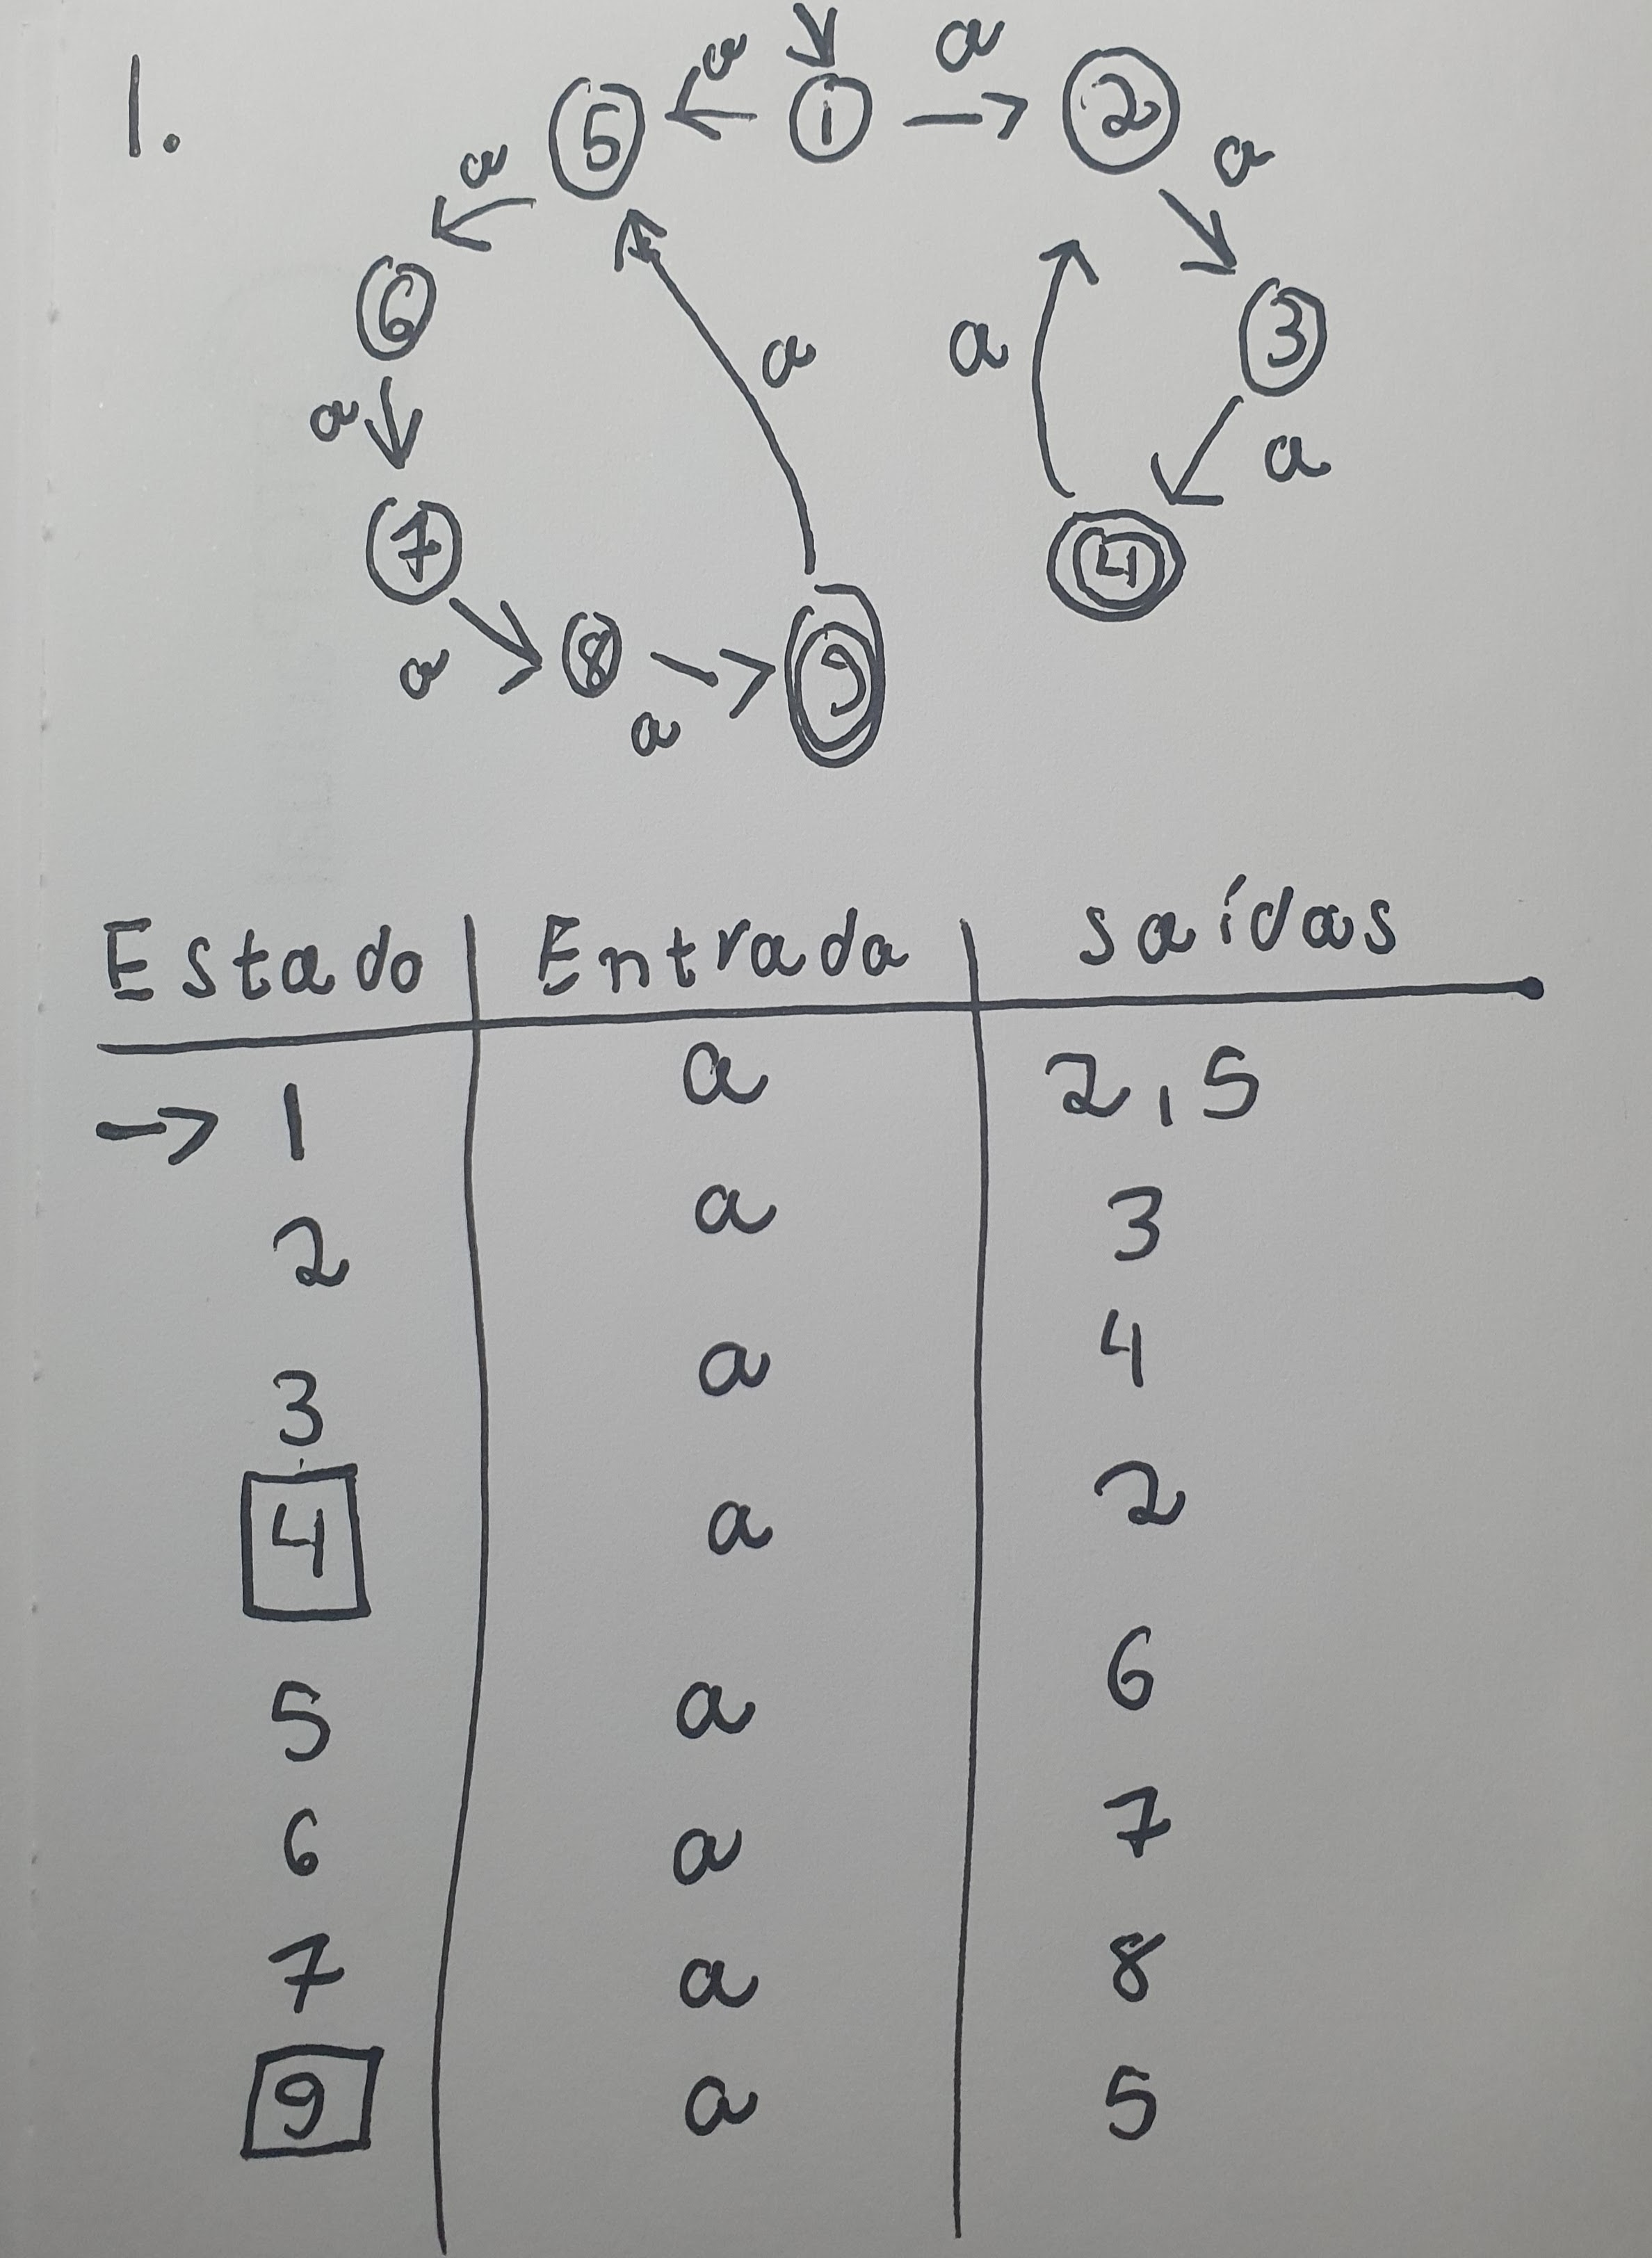 1.
a a
5 1 2
a a
6 3
a a a a
7 4
8 9
a a
Estado Entrada saídas
→ 1 a 2,5
2 a 3
3 a 4
4 a 2
5 a 6
6 a 7
7 a 8
9 a 5